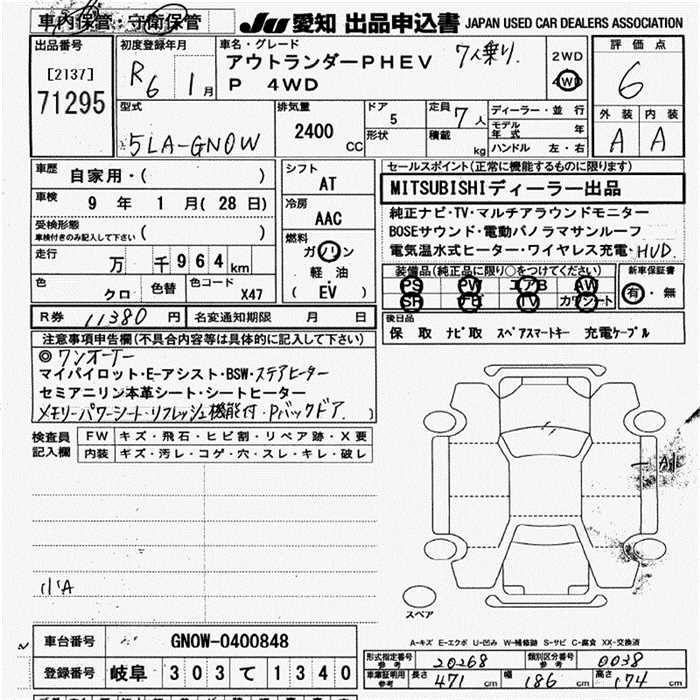 車内保管・守衛保管 JU 愛知 出品申込書 JAPAN USED CAR DEALERS ASSOCIATION
出品番号 [2137] 71295
初度登録年月 R6 1月
車名・グレード アウトランダーPHEV 7人乗り.
P 4WD
2WD 4WD
評価点 6
外装 A 内装 A
型式 5LA-GN0W
排気量 2400 CC
ドア 5
形状
定員 7人
積載 kg
ディーラー・並行
モデル年式 年
ハンドル 左・右
車歴 自家用・( )
車検 9年 1月(28日)
受検形態 車検付きのみ記入して下さい ( )
走行 万 千964km
色 クロ 色替 色コード X47
シフト AT
冷房 AAC
燃料 ガソリン
軽油
( EV )
セールスポイント(正常に機能するものに限ります)
MITSUBISHIディーラー出品
純正ナビ・TV・マルチアラウンドモニター
BOSEサウンド・電動パノラマサンルーフ
電気温水式ヒーター・ワイヤレス充電・HUD.
装備品(純正品に限り○をつけてください)
PS PW エアB AW
SR ナビ TV カワシート
新車保証書 有・無
R券 11380円 名変通知期限 月 日
後日品
保 取 ナビ取 スペアスマートキー 充電ケーブル
注意事項申告欄(不具合内容等は具体的に記入して下さい)
◎ワンオーナー
マイパイロット・E-アシスト・BSW・ステアヒーター
セミアニリン本革シート・シートヒーター
メモリーパワーシート・リフレッシュ機能付・Pバックドア.
検査員記入欄
FW キズ・飛石・ヒビ割・リペア跡・X要
内装 キズ・汚レ・コゲ・穴・スレ・キレ・破レ
A1
小A
スペア
A-キズ E-エクボ U-凹み W-補修跡 S-サビ C-腐食 XX-交換済
車台番号 GN0W-0400848
登録番号 岐阜 303 て 1340
形式指定番号 参考 20268 類別区分番号 参考 0038
車庫証明用 参考 長さ 471cm 幅 186cm 高さ 174cm